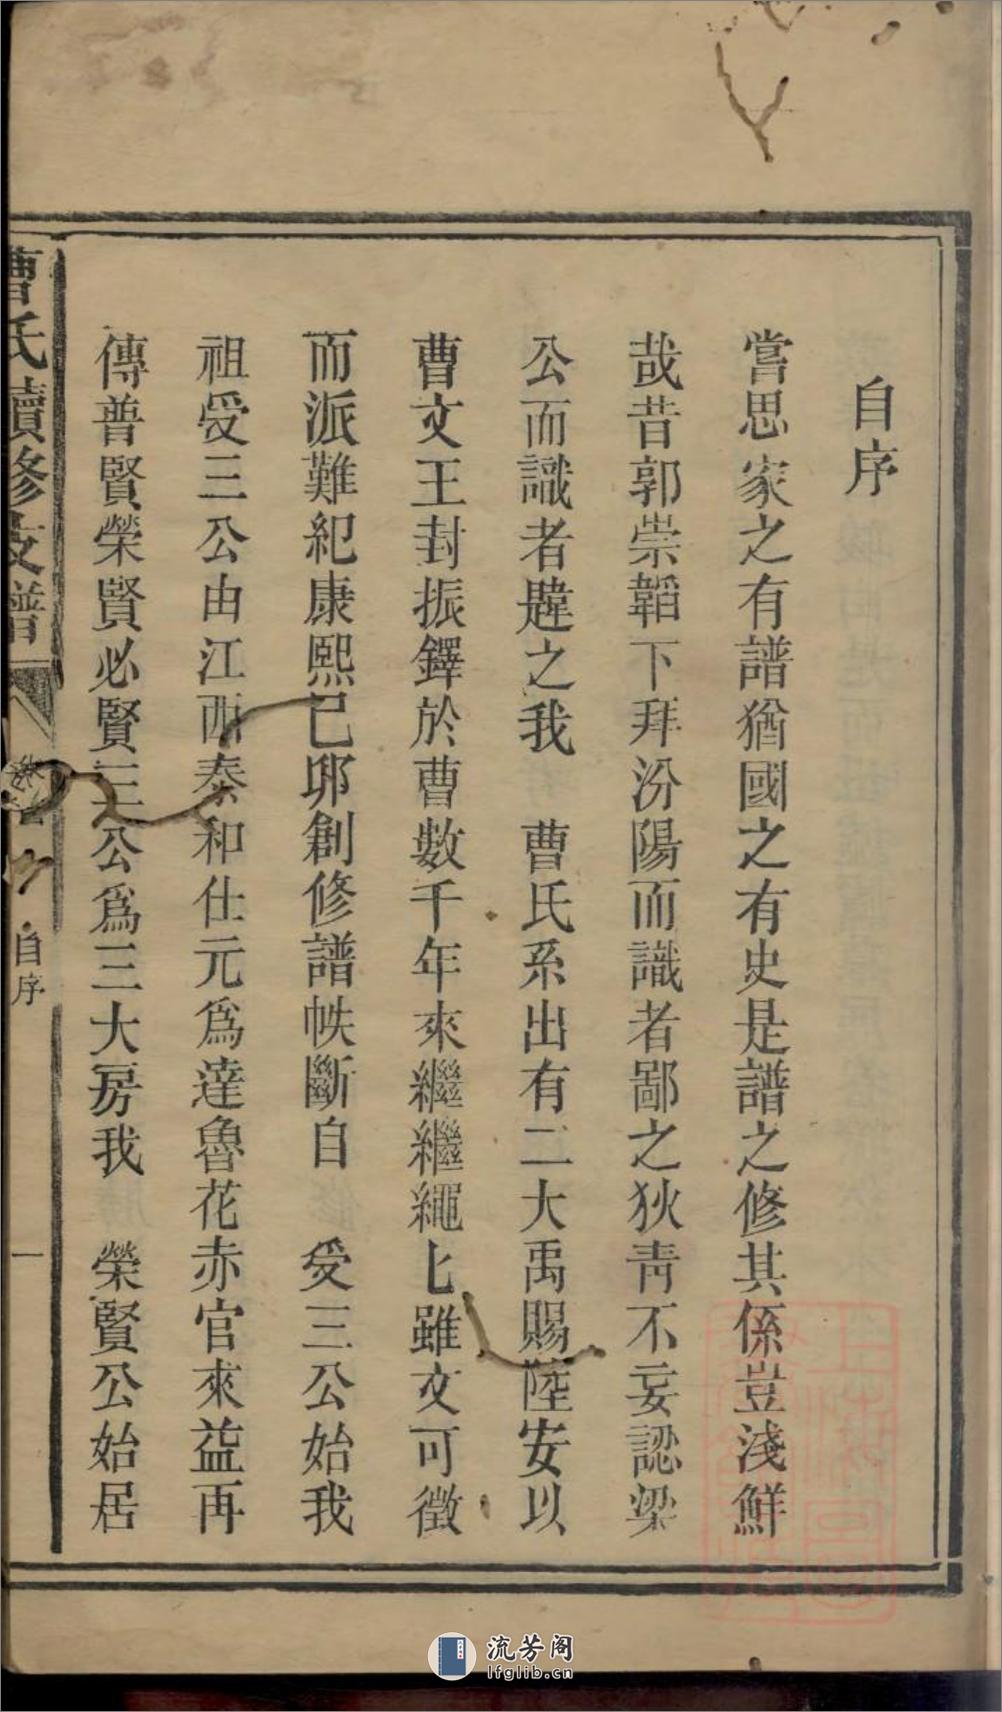 自序
嘗思家之有譜猶國之有史是譜之修其係豈淺鮮
哉昔郭崇韜下拜汾陽而識者鄙之狄青不妄認梁
公而識者韙之我　曹氏系出有二大禹賜陸安以
曹文王封振鐸於曹數千年來繼繼繩匕雖文可徵
而派難紀康熙己夘創修譜帙斷自　受三公始我
祖受三公由江西泰和仕元為達魯花赤官來益再
傳普賢榮賢必賢三公為三大房我　榮賢公始居
曹氏續修支譜
自序
一
流芳阁
lfglib.cn